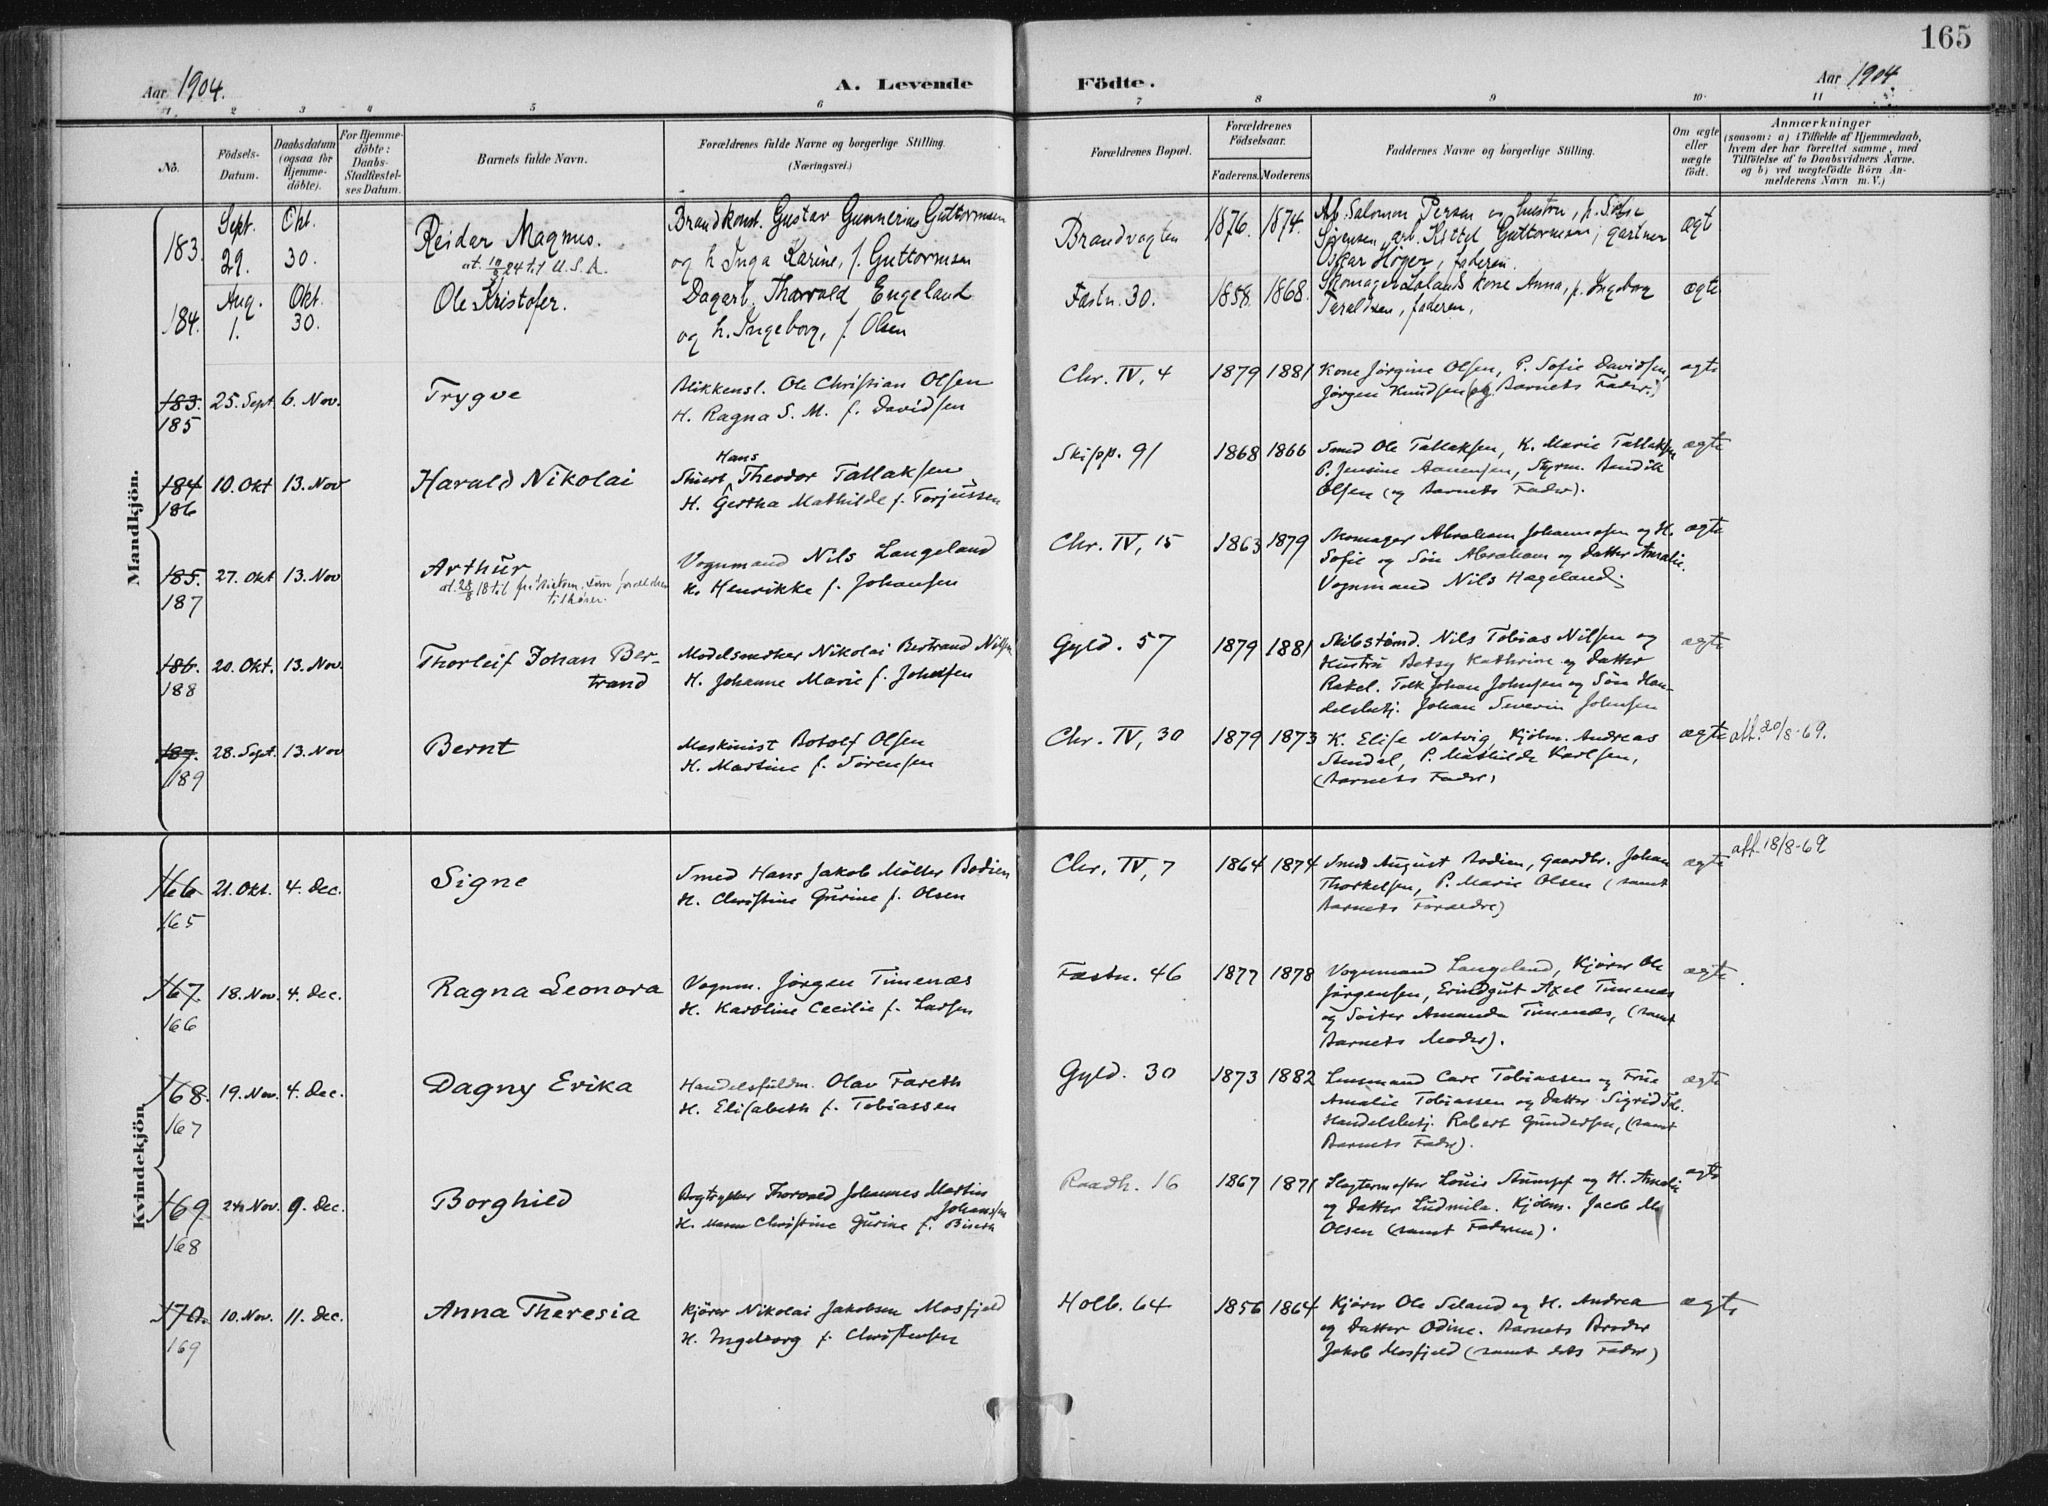 165
Aar 1904.
A. Levende Födte.
Aar 1904
1 2 3 4 5 6 7 8 9 10 11
No.
Födsels-Datum.
Daabsdatum (ogsaa for Hjemme-döbte).
For Hjemme-döbte: Daabs-Stadfæstel-ses Datum.
Barnets fulde Navn.
Forældrenes fulde Navne og borgerlige Stilling. (Næringsvei.)
Forældrenes Bopæl.
Forældrenes Födselsaar.
Faderens. Moderens.
Faddernes Navne og borgerlige Stilling.
Om ægte eller uægte födt.
Anmærkninger
(saasom: a) i Tilfælde af Hjemmedaab, hvem der har forrettet samme, med Tilföielse af to Daabsvidners Navne, og b) ved uægtefödte Börn An-melderens Navn m. V.)
Mandkjön.
183. Sept. 29. Okt. 30. Reidar Magnus. Brandkonst. Gustav Gunnerius Guttormsen
at. 19/3 24 til U.S.A. og h. Inga Karine, f. Guttormsen
Brandvagten 1876. 1874. Arb. Salomon Persen og hustru, p.
Sørensen, arb. Kittel Guttormsen, gartner
Oskar Høyer, faderen. ægt
184. Aug. 1. Okt. 30. Ole Kristofer. Dagarb. Thorvald Engeland
og h. Ingeborg, f. Olsen
Fæstn. 30. 1858. 1868. Skomager Lolands kone Anna, p. Ingeborg
Taraldsen, faderen. ægte
183. 185 25. Sept. 6. Nov. Trygve Blikkensl. Ole Christian Olsen
H. Ragna S. M. f. Davidsen
Chr. IV, 4 1879 1881 Kone Jørgine Olsen, P. Sofie Davidsen,
Jørgen Knudsen (og Barnets Fader.) ægte
184 186 10. Okt 13. Nov Harald Nikolai Hans Theodor Tallaksen
H. Gertha Mathilde f. Torjussen
Skipp. 91 1868 1866 Smed Ole Tallaksen, K. Marie Tallaksen
P. Jensine Aanensen, Styrm.
Olsen (og Barnets Fader). ægte
185. 187 27. Okt 13. Nov Arthur Vognmand Nils Langeland
at. 28/8 18 til som foreldrene tilhører. H. Henrikke f. Johansen
Chr. IV, 15 1863 1879 Skomager Abraham Johannesen og H.
Sofie og Søn Abraham og Datter Amalie.
Vognmand Nils Hageland. ægte
186. 188 20. Okt. 13. Nov. Thorleif Johan Ber-trand Modelsnedker Nikolai Bertrand Nilsen
H. Johanne Marie f. Johnsen
Gyld. 57 1879 1881 Skibstømd. Nils Tobias Nilsen og
Hustru Betsy Kathrine og Datter
Rakel. Tolk Johan Johnsen og Søn Han-
delsbetj. Johan Severin Johnsen ægte
187. 189 28. Sept. 13. Nov Bernt Maskinist Botolf Olsen
H. Martine f. Sørensen
Chr. IV, 30 1879 1873 K. Elise Natvig, Kjøbm. Andreas
Stendal, P. Mathilde Karlsen,
(Barnets Fader) ægte att. 20/8-69.
Kvindekjön
166 165 21. Okt. 4. Dec. Signe Smed Hans Jakob Möller Bodien
H. Christine Gurine f. Olsen
Chr. IV, 7 1864 1874 Smed August Bodien, Gaardbr. Johan
Thorkelsen, P. Marie Olsen (samt
Barnets Forældre) ægte att. 18/8-69
167 166 18. Nov. 4. Dec. Ragna Leonora Vognm. Jørgen Timenæs
H. Karoline Cecilie f. Larsen
Fæstn. 46 1877 1878 Vognmand Langeland, Kjører Ole
Jørgensen, Axel Timenæs
og Søster Amanda Timenæs, (samt
Barnets Moder). ægte
168. 167 19. Nov. 4. Dec. Dagny Erika Handelsfuldm. Olav Fareth
H. Elisabeth f. Tobiassen
Gyld. 30 1873 1882 Lensmand Carl Tobiassen og Frue
Amalie Tobiassen og Datter Sigrid Tob.
Handelsbetj. Robert Gundersen, (samt
Barnets Fader). ægte
169 168 24 Nov. 9. Dec. Borghild Bogtrykker Thorvald Johannes Martin Johanssen
H. Christine Gurine f.
Raadh. 16 1867 1871 Slagtermester Louis Stumpf og H. Amalie
og Datter Ludmila. Kjøbm. Jacob M
Olsen (samt Faderen). ægte
170. 169 10. Nov. 11. Dec. Anna Theresia Kjører Nikolai Jakobsen Mosfjeld
H. Ingeborg f. Christensen
Holb. 64 1856 1864 Kjører Ole Seland og H. Andrea
og Datter Odine. Barnets Broder
Jakob Mosfjeld (samt dets Fader) ægte